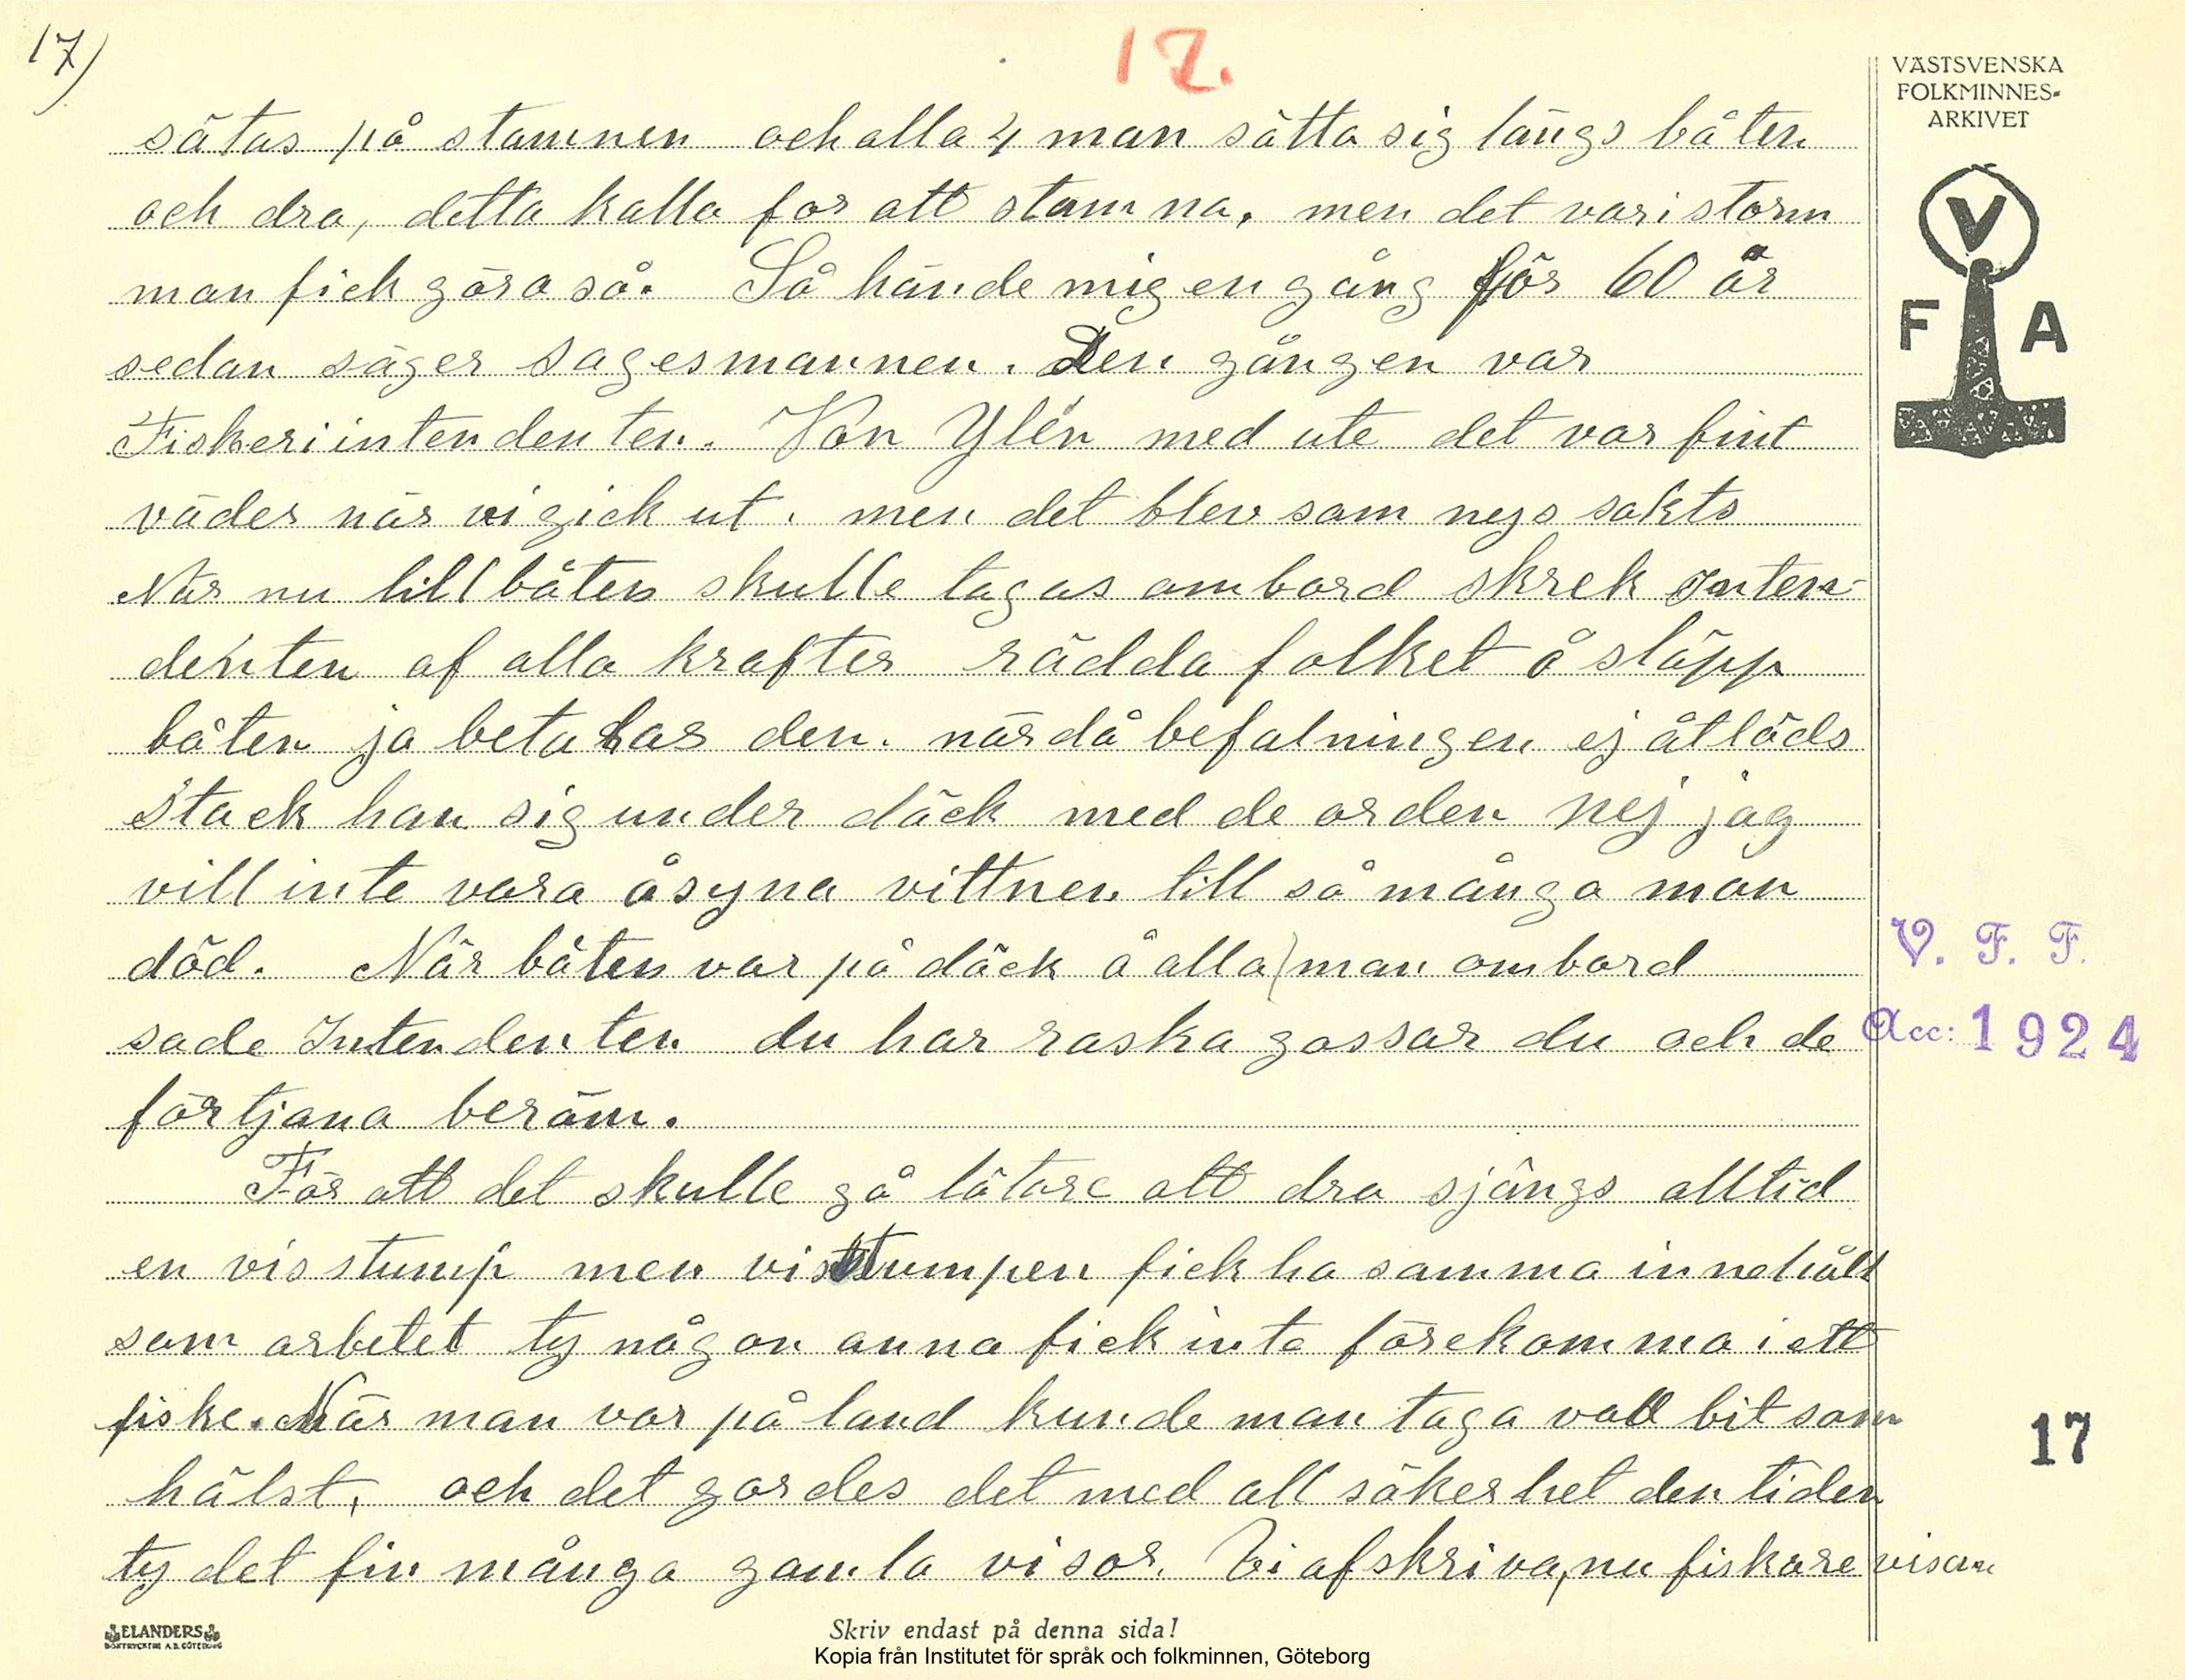 17)
12.
VÄSTSVENSKA
FOLKMINNES-
ARKIVET
V
F A
sätas på stamnen och alla 4 man sätta sig längs båten
och dra, detta kalla for att stamna, men det var i storm
man fick göra så. Så hände mig en gång för 60 år
sedan säger sagesmannen. Den gången var
Fiskeriintendenten. Von Ylén med ute det var fint
väder när vi gick ut. men det blev som nys sakts
När nu lillbåten skulle tagas ombord skrek Inten-
denten af alla krafter rädda folket å släpp
båten ja betalar den. när då befalningen ej åtlöds
stack han sig under däck med de orden nej jag
vill inte vara åsyna vittnen till så många man
död. När båten var på däck å alla man ombord
sade Intendenten du har raska gossar du och de
förtjana beröm.
För att det skulle gå lätare att dra sjöngs alltid
en vis stump men visstumpen fick ha samma innehålt
som arbetet ty någon anna fick inte förekomma i ett
fiske. När man var på land kunde man taga vad bit som
hälst, och det gordes det med all säkerhet den tiden
ty det fin många gamla visor. Vi afskriva, nu fiskare visan
V. F. F.
Acc: 1924
17
ELANDERS
BOKTRYCKERI A.B. GÖTEBORG
Skriv endast på denna sida!
Kopia från Institutet för språk och folkminnen, Göteborg